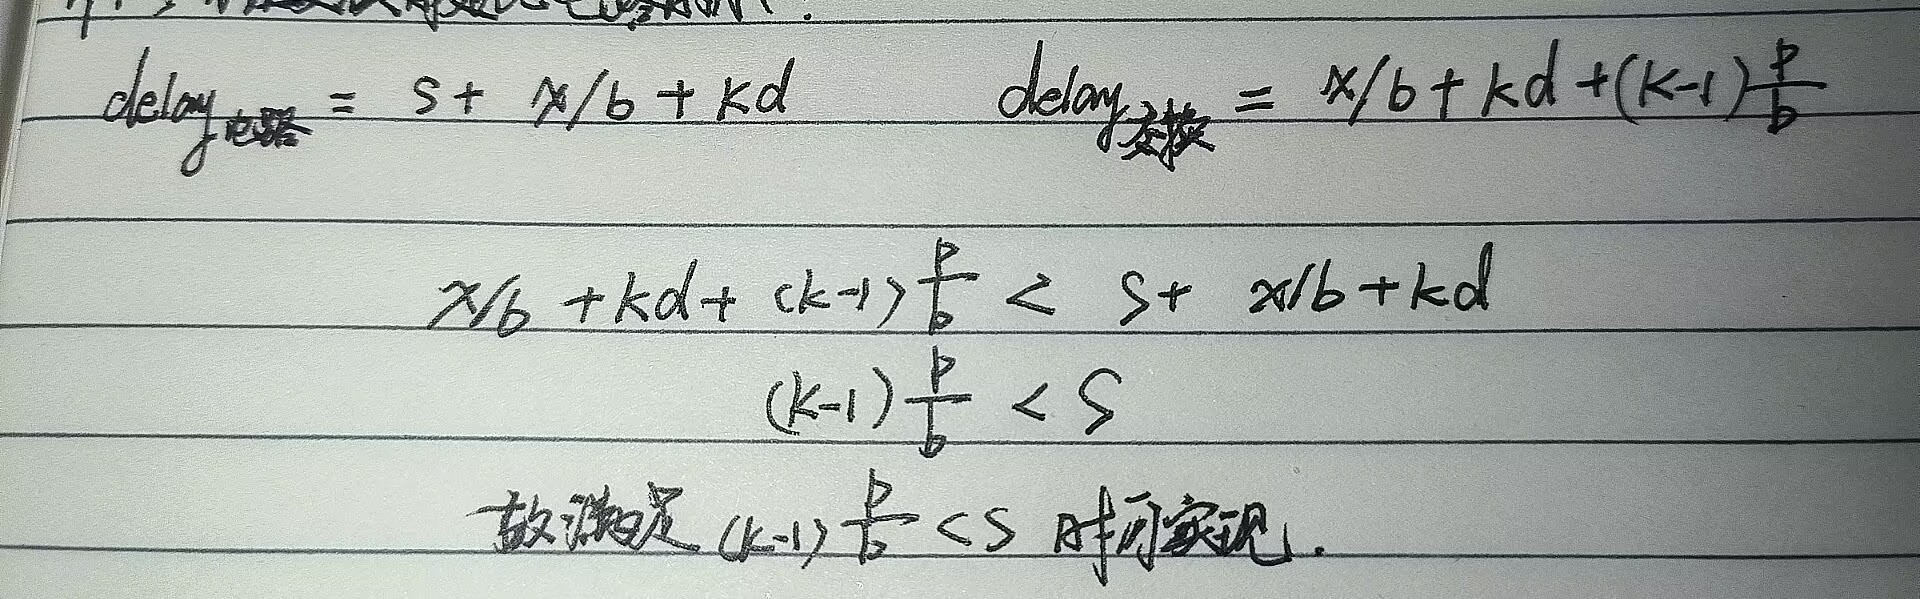 delay电路 = S + x/b + kd  delay交换 = x/b + kd + (k-1) p/b
x/b + kd + (k-1) p/b < S + x/b + kd
(k-1) p/b < S
故满足 (k-1) p/b < S 时可实现.